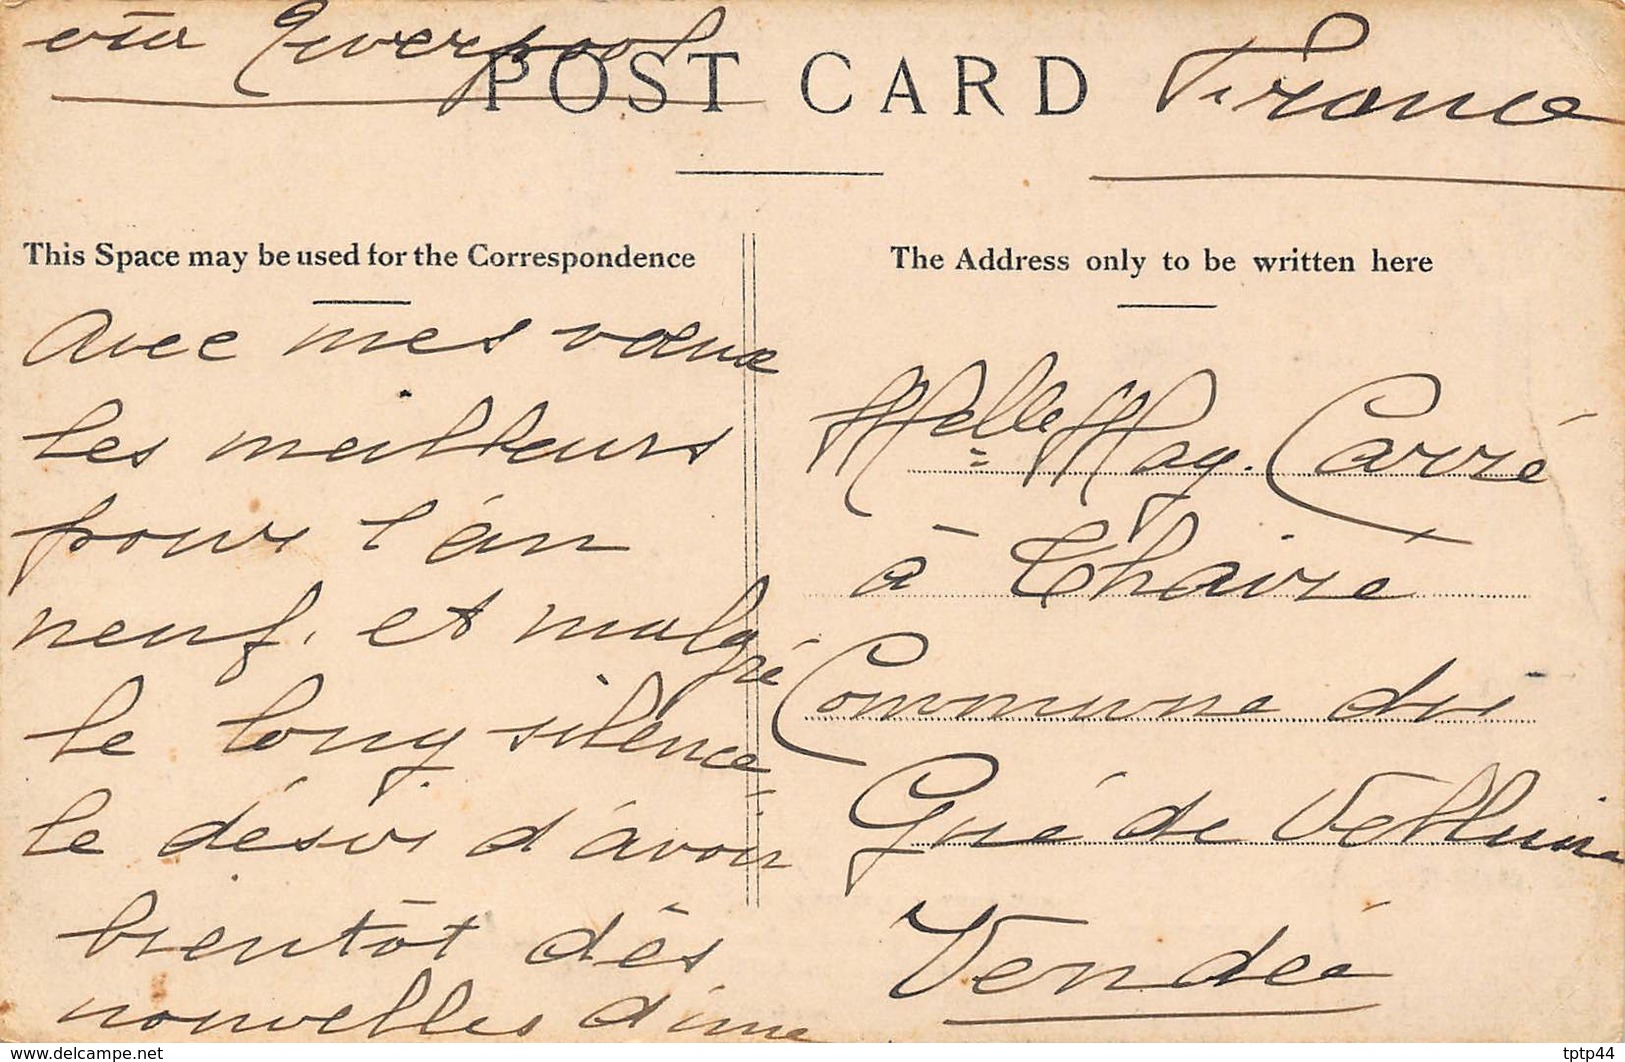 via Liverpool
POST CARD
France
This Space may be used for the Correspondence
Avec mes vœux
les meilleurs
pour l'an
neuf, et malgré
le long silence
le désir d'avoir
bientôt dès
nouvelles d'une
The Address only to be written here
Melle May. Carré
à Thaire
Commune du
Gué de Velluire
Vendée
www.delcampe.net
tptp44